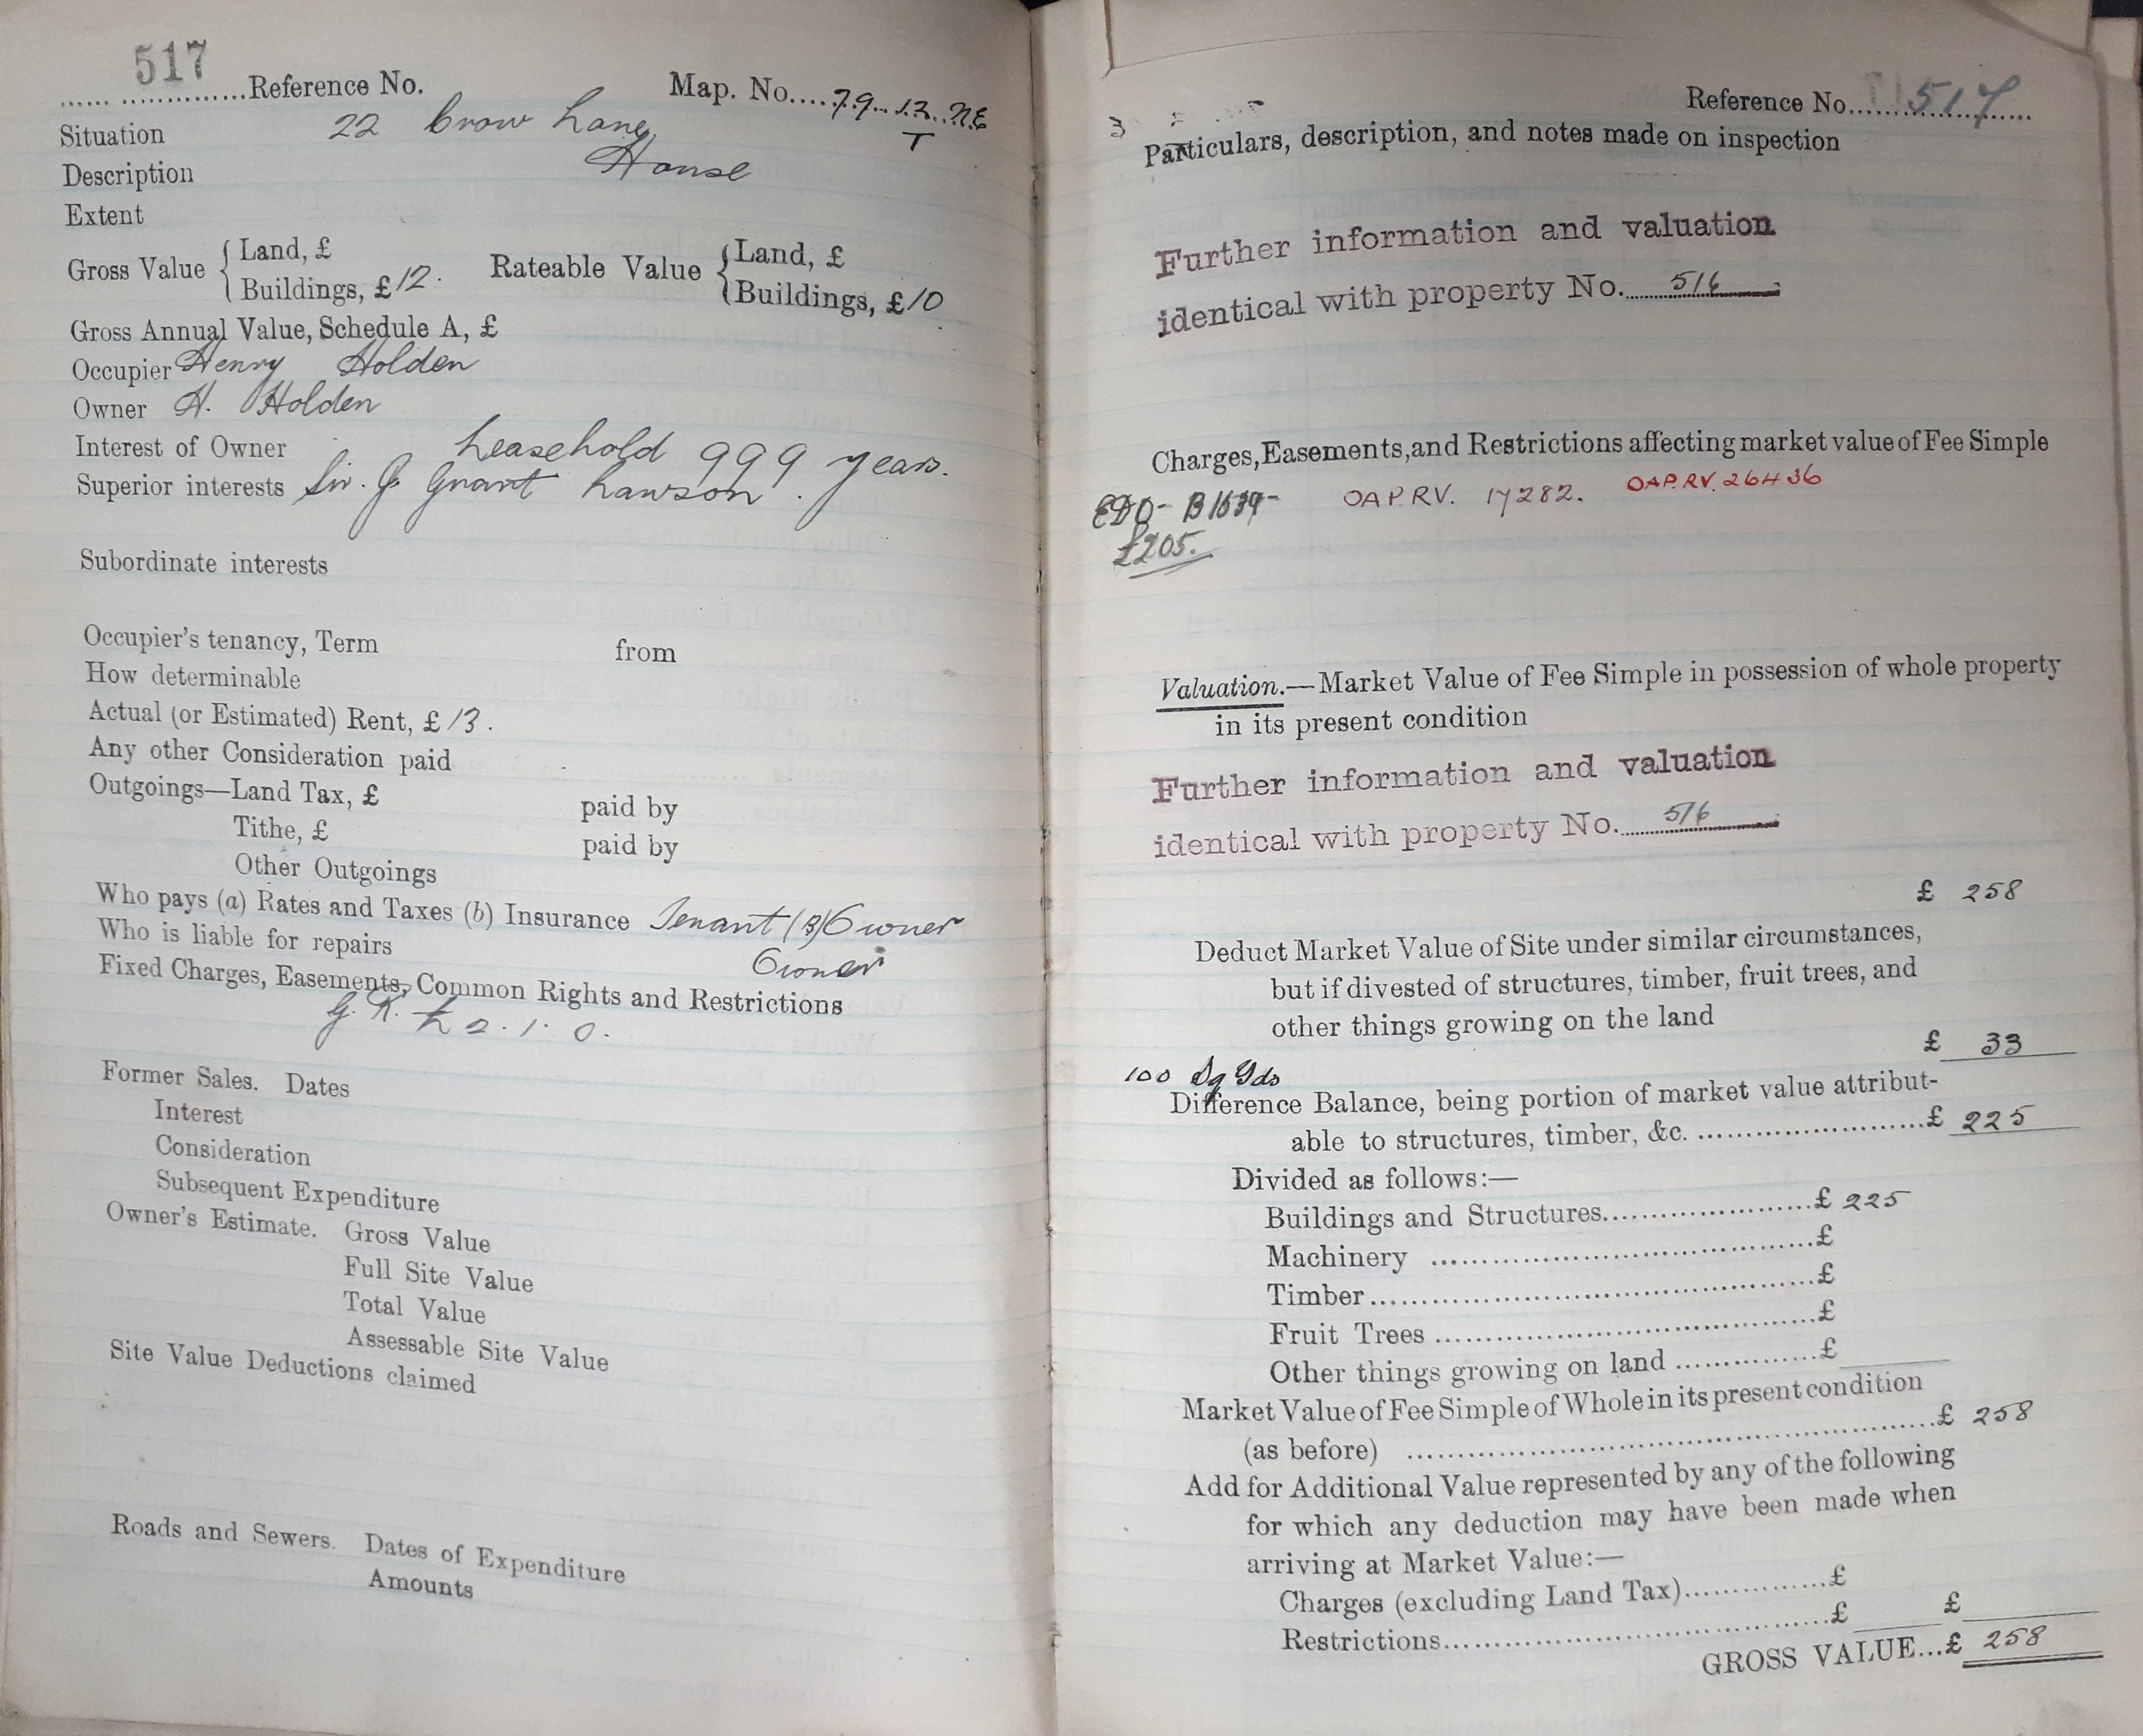 517
Reference No. Map. No. 79.12.NE
T
Situation 22 Crow Lane,
Description House
Extent
Gross Value { Land, £
Buildings, £12. Rateable Value { Land, £
Buildings, £10
Gross Annual Value, Schedule A, £
Occupier Henry Holden
Owner H. Holden
Interest of Owner Leasehold 999 years.
Superior interests Sir. J. Grant Lawson.
Subordinate interests
Occupier's tenancy, Term from
How determinable
Actual (or Estimated) Rent, £13.
Any other Consideration paid
Outgoings—Land Tax, £ paid by
Tithe, £ paid by
Other Outgoings
Who pays (a) Rates and Taxes (b) Insurance Tenant (B) Owner
Who is liable for repairs Owner
Fixed Charges, Easements, Common Rights and Restrictions
G. R. £2.1.0.
Former Sales. Dates
Interest
Consideration
Subsequent Expenditure
Owner's Estimate. Gross Value
Full Site Value
Total Value
Assessable Site Value
Site Value Deductions claimed
Roads and Sewers. Dates of Expenditure
Amounts
Reference No. 517
3
Particulars, description, and notes made on inspection
Further information and valuation
identical with property No. 516
Charges, Easements, and Restrictions affecting market value of Fee Simple
EDO- B1639- OAP.RV. 17282. OAP.RV. 26436
£205.
Valuation.—Market Value of Fee Simple in possession of whole property
in its present condition
Further information and valuation
identical with property No. 516
£ 258
Deduct Market Value of Site under similar circumstances,
but if divested of structures, timber, fruit trees, and
other things growing on the land
£ 33
100 Sq Yds
Difference Balance, being portion of market value attribut-
able to structures, timber, &c. £ 225
Divided as follows:—
Buildings and Structures £ 225
Machinery £
Timber £
Fruit Trees £
Other things growing on land £
Market Value of Fee Simple of Whole in its present condition
(as before) £ 258
Add for Additional Value represented by any of the following
for which any deduction may have been made when
arriving at Market Value:—
Charges (excluding Land Tax) £
Restrictions £ £
GROSS VALUE...£ 258